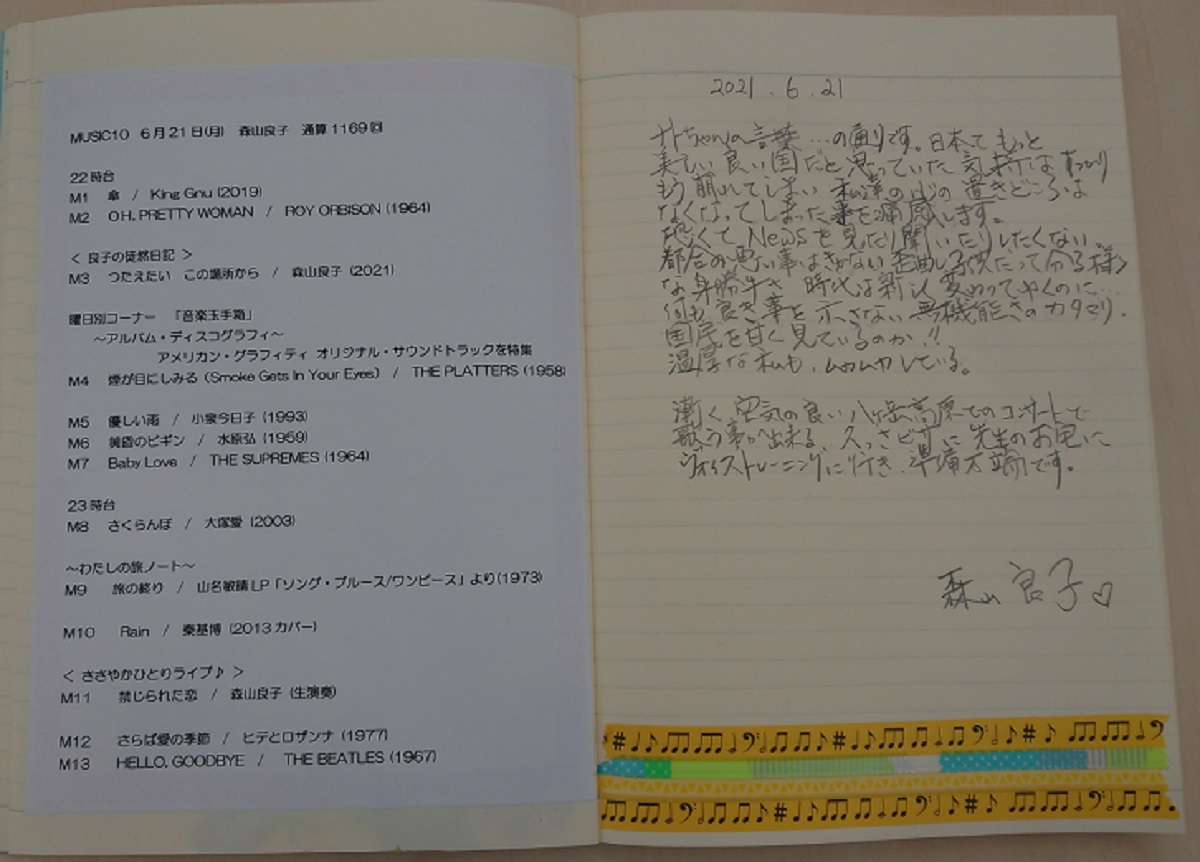 MUSIC10 6月21日(月) 森山良子 通算1169回
22時台
M1 傘 / King Gnu (2019)
M2 OH, PRETTY WOMAN / ROY ORBISON (1964)
< 良子の徒然日記 >
M3 つたえたい この場所から / 森山良子 (2021)
曜日別コーナー 「音楽玉手箱」
～アルバム・ディスコグラフィ～
アメリカン・グラフィティ オリジナル・サウンドトラックを特集
M4 煙が目にしみる (Smoke Gets In Your Eyes) / THE PLATTERS (1958)
M5 優しい雨 / 小泉今日子 (1993)
M6 黄昏のビギン / 水原弘 (1959)
M7 Baby Love / THE SUPREMES (1964)
23時台
M8 さくらんぼ / 大塚愛 (2003)
～わたしの旅ノート～
M9 旅の終り / 山名敏晴LP「ソング・ブルース/ワンピース」より(1973)
M10 Rain / 秦基博 (2013カバー)
< ささやかひとりライブ♪ >
M11 禁じられた恋 / 森山良子 (生演奏)
M12 さらば愛の季節 / ヒデとロザンナ (1977)
M13 HELLO, GOODBYE / THE BEATLES (1967)
2021.6.21
の言葉…の通りです。日本て もっと
美しい良い国だと思っていた気持は すっかり
もう崩れてしまい 私達の心の置きどころは
なくなってしまった事を痛感します。
恐くて Newsを見たり聞いたりしたくない。
都合の悪い事はきかない 子供だって分る様
な身勝手さ 時代は新しく変わってゆくのに…
何も良き事を示さない 無機能さのカタマリ.
国民を甘く見ているのか!!
温厚な私も、ムカムカしている。
漸く 空気の良い八ヶ岳高原でのコンサートで
歌う事が出来る、久っさびすに 先生のお宅に
ヴォイストレーニングに行き、準備万端です。
森山良子♡